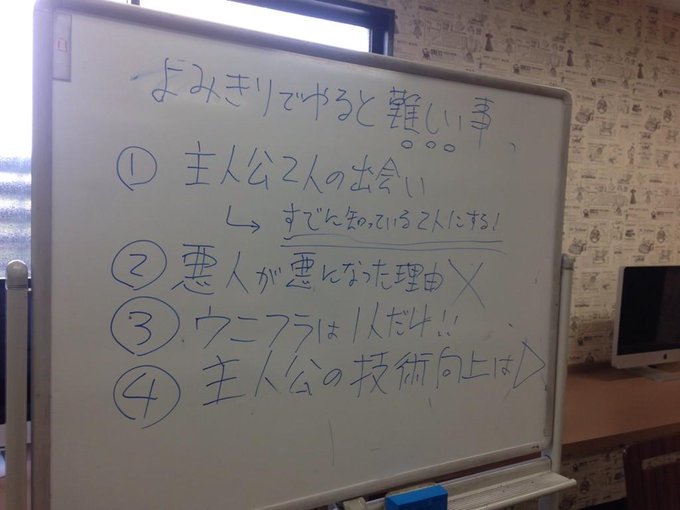 よみきりでやると難しい事、
① 主人公2人の出会い
↳ すでに知っている2人にする!
② 悪人が悪になった理由×
③ ウニフラは1人だけ!!
④ 主人公の技術向上は△